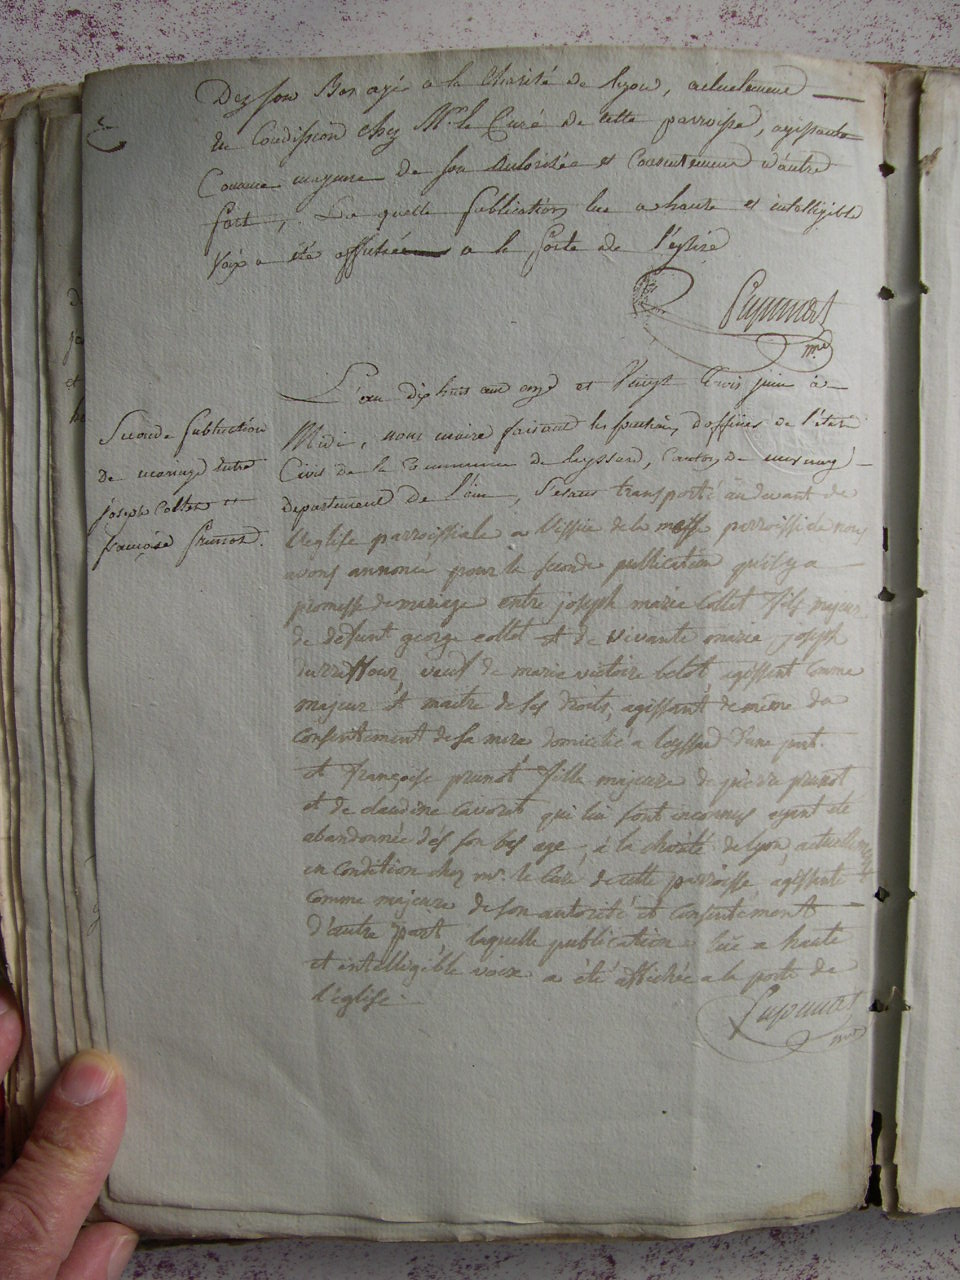 Dez son Bas age a la Charité de lyon, actuelement
en Condission chez Mr. le Curé de cette parroisse, agissante
Comme majeure de son Autorité et Consentement d'autre
part, La quelle publication, lue a haute et intelligible
Voix a été affichée a la porte de l'eglise
L'an dix huit cent onze et Vingt trois juin à
Midi, nous maire faisant les fonctions d'officier de l'état
Civil de la Commune de leyssard, canton de
departement de l'ain, s'etant transporté au devant de
l'eglise parroissiale a l'issüe de la messe parroissiale nous
avons annoncé pour la seconde publication qu'il y a
promesse de mariage entre joseph marie Collet fils majeur
de defunt george collet et de vivante marie joseph
veuf de marie victoire belot, agissant comme
majeur et maitre de ses droits, agissant de même du
Consentement de sa mere domicilié a leyssard d'une part.
et françoise prunot fille majeure de pierre prunot
et de claudine cavorat qui lui sont inconnus ayant été
abandonnée dés son bas age, á la charité de lyon, actuellement
en Condition chez mr. le Curé de cette parroisse agissante
Comme majeure de son autorité et Consentement
d'autre part, laquelle publication lüe a haute
et intelligible voix a été affichée a la porte de
l'église.
Seconde publication
de mariage entre
joseph Collet et
françoise prunot.